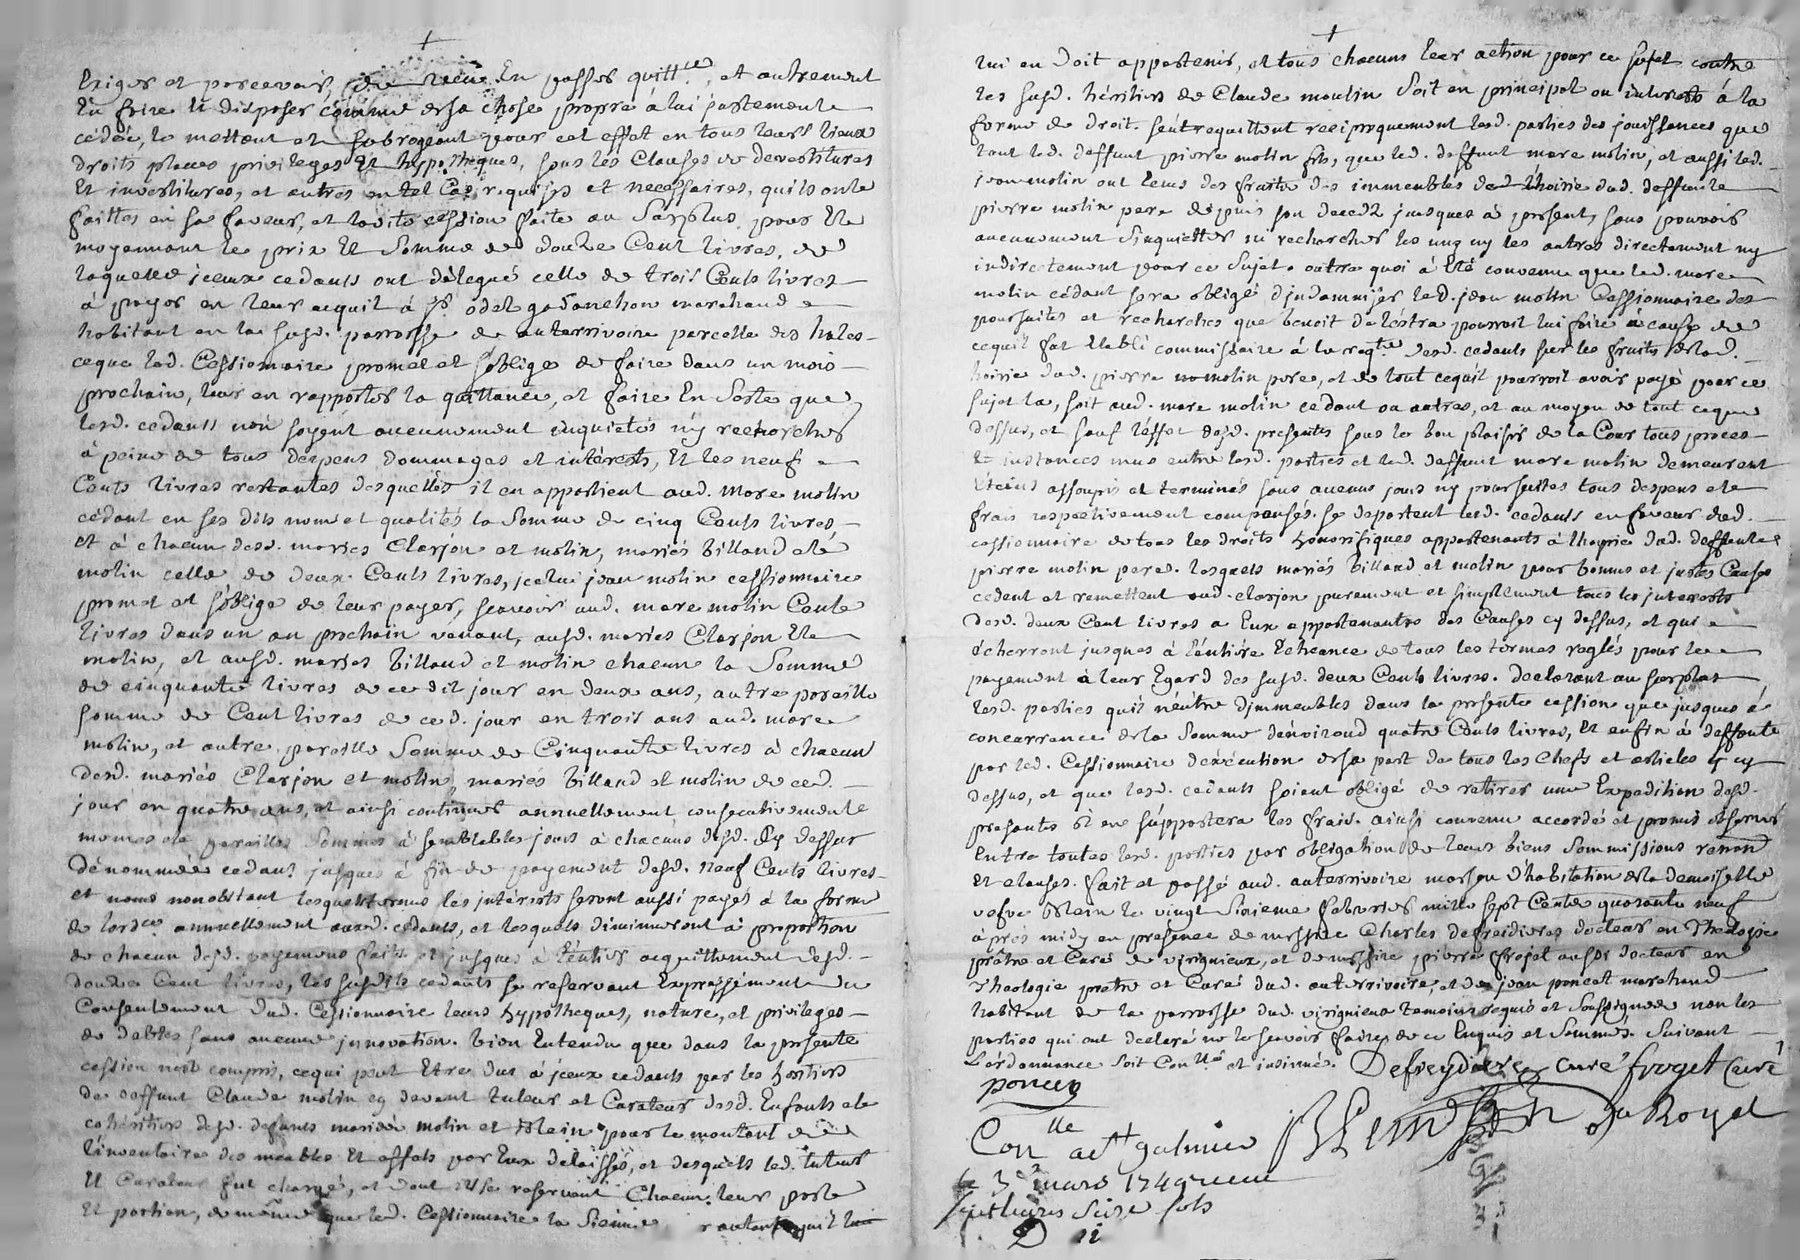 +
Exiger et percevoir, du receu En passer quitt.ce, et autrement
En faire Et disposer comme de sa chose propre à lui justemente
cédée, le mettent et subrogeant pour cet effet en tous leurs lieux
droits places privileges Et hypotheques, sous les Clauses de devestitures
Et investitures, et autres en tel Cas requises et necessaires, qu'ils onte
faittes en sa faveur, et ladite cession faite au surplus pour Et
moyennant le prix Et Somme de douze Cent livres, de
laquelle jceux cedants ont délegué celle de trois Cents livres
à payer en leur acquit à Sr. odet gadanchon marchand
habitant en la susd. parroisse de auterrivoire parcelle des hales
ceque led. Cessionnaire promet et s'oblige de faire dans un mois
prochain, leur en rapporter la quittance, et faire En Sorte que
lesd. cedants n'en soyent aucunement inquietés ny recherchés
à peine de tous despens dommages et interests, Et les neuf
Cents livres restantes desquelles il en appartient aud. More molin
cédant en ses dits noms et qualités la Somme de cinq Cents livres
et à chacun desd. mariés Clarjon et molin, mariés billand et
molin celle de deux Cents livres, jcelui jean molin cessionnaire
promet et s'oblige de leur payer, sçavoir aud. more molin Cente
livres dans un an prochain venant, ausd. mariés Clarjon Et
molin, et ausd. mariés billand et molin chacun la Somme
de cinquante livres de ce dit jour en deux ans, autre pareille
somme de Cent livres de ced. jour en trois ans aud. more
molin, et autre pareille Somme de Cinquante livres à chacun
desd. mariés Clarjon et molin, mariés billand et molin de ced.
jour en quatre ans, et ainsi continuer annuellement consecutivemente
memes et pareilles Sommes à semblables jours à chacuns desd. Cy dessus
dénommées cedants jusques à fin de payement desd. neuf Cents livres
et nous nonobstant lesquels termes les intérêts seront aussi payés à la forme
de l'ord.ce annuellement auxd. cedants, et lesquels diminueront à proportion
de chacun desd. payemens faits et jusques à l'entier acquittement desd.
douze Cent livres, les susdits cedants se reservant Expressément du
Consentement dud. Cessionnaire leurs hypotheques, nature, et privileges
de debtes sans aucune jnnovation. bien Entendu que dans la presente
cession n'est compris, cequi peut Etre dus à jceux cedants par les heritiers
de deffunt Claude molin cy devant tuteur et Curateur desd. Enfants et
cohéritiers desd. defunts mariés molin et blein pour le montant de
l'inventaire des meubles Et effets par Eux delaissés, et desquels led. tuteur
Et Curateur fut chargé, et dont ils se reservent Chacun leur parte
Et portion, de même que led. Cessionnaire la Sienne rantant qu'il lui
+
lui en doit appartenir, et tous chacuns leur action pour ce sujet contre
les susd. héritiers de Claude moulin Soit en principal ou interests à la
forme de droit. s'entrequittent reciproquement lesd. parties des jouissances que
tant led. deffunt pierre molin fils, que led. deffunt more molin, et aussi led.
jean molin ont tenus des fruits des immeubles de l'hoirie dud. deffunte
pierre molin pere depuis son decedz jusques à present, sans pouvoir
aucunement s'inquietter ni rechercher les ung ny les autres directement ny
indirectement pour ce Sujet. outre quoi à Eté convenu que led. more
molin cédant sera obligé d'jndamniser led. jean molin Cessionnaire des
poursuites et recherches que benoit de l'éstra pourroit lui faire à cause de
cequil fut Etabli commissaire à la reqte. desd. cedants sur les fruits de lad.
hoirie dud. pierre molin pere, et de tout cequil pourroit avoir payé pour ce
sujet la, soit aud. more molin cedant ou autres, et au moyen de tout ceque
dessus, et sauf l'effet desd. presentes sous le bon plaisir de la Cour tous proces
Et instances mus entre lesd. parties et led. deffunt more molin demeurent
Eteins assoupis et terminés sans aucuns jours ny poursuittes tous despens et
frais respectivement compensés. se departent lesd. cedants en faveur dud.
cessionnaire de tous les droits honorifiques appartenants à l'hoyrie dud. deffunte
pierre molin pere. lesquels mariés billand et molin pour bonnes et justes Causes
cedent et remettent aud. clarjon purement et simplement tous les jnterests
desd. deux Cent livres a Eux appartenantes des Causes cy dessus, et qui
écherront jusques à l'entière Echeance de tous les termes reglés pour le
payement à leur Egard des susd. deux Cents livres. declarant au surplus
lesd. parties qu'il n'entre d'jmmeubles dans la presente cession que jusques à
concurrance de la Somme d'environd quatre Cents livres, Et enfin à deffaute
par led. Cessionnaire d'exécution de sa part de tous les chefs et articles cy
dessus, et que lesd. cedants soient obligé de retirer une Expedition desd.
presentes il en supportera les frais. ainsi convenu accordés et promis observer
Entre toutes lesd. parties par obligation de leurs biens Sommissions renond
Et clauses. fait et passé aud. auterrivoire maison d'habitation de la demoiselle
vefve blein le vingt Sixieme febvrier mille sept Cents quarante neuf
après midy en presence de messire Charles defreidieres docteur en Theologie
prêtre et Curé de virignieux, et de messire pierre froget aussi docteur en
Theologie pretre et Curé dud. auterrivoire, et de jean poncet marchand
habitant de la parroisse dud. virignieux temoins requis et Soussignés non les
parties qui ont declaré ne le sçavoir faire de ce Enquis et Sommés. Suivant
l'ordonnance soit Con.llé et insinué. Defreydiere curé froget Curé
poncet
Con.lle act galmier Blein no.re Royal
le 3e mars 1749
sept livres Seize sols